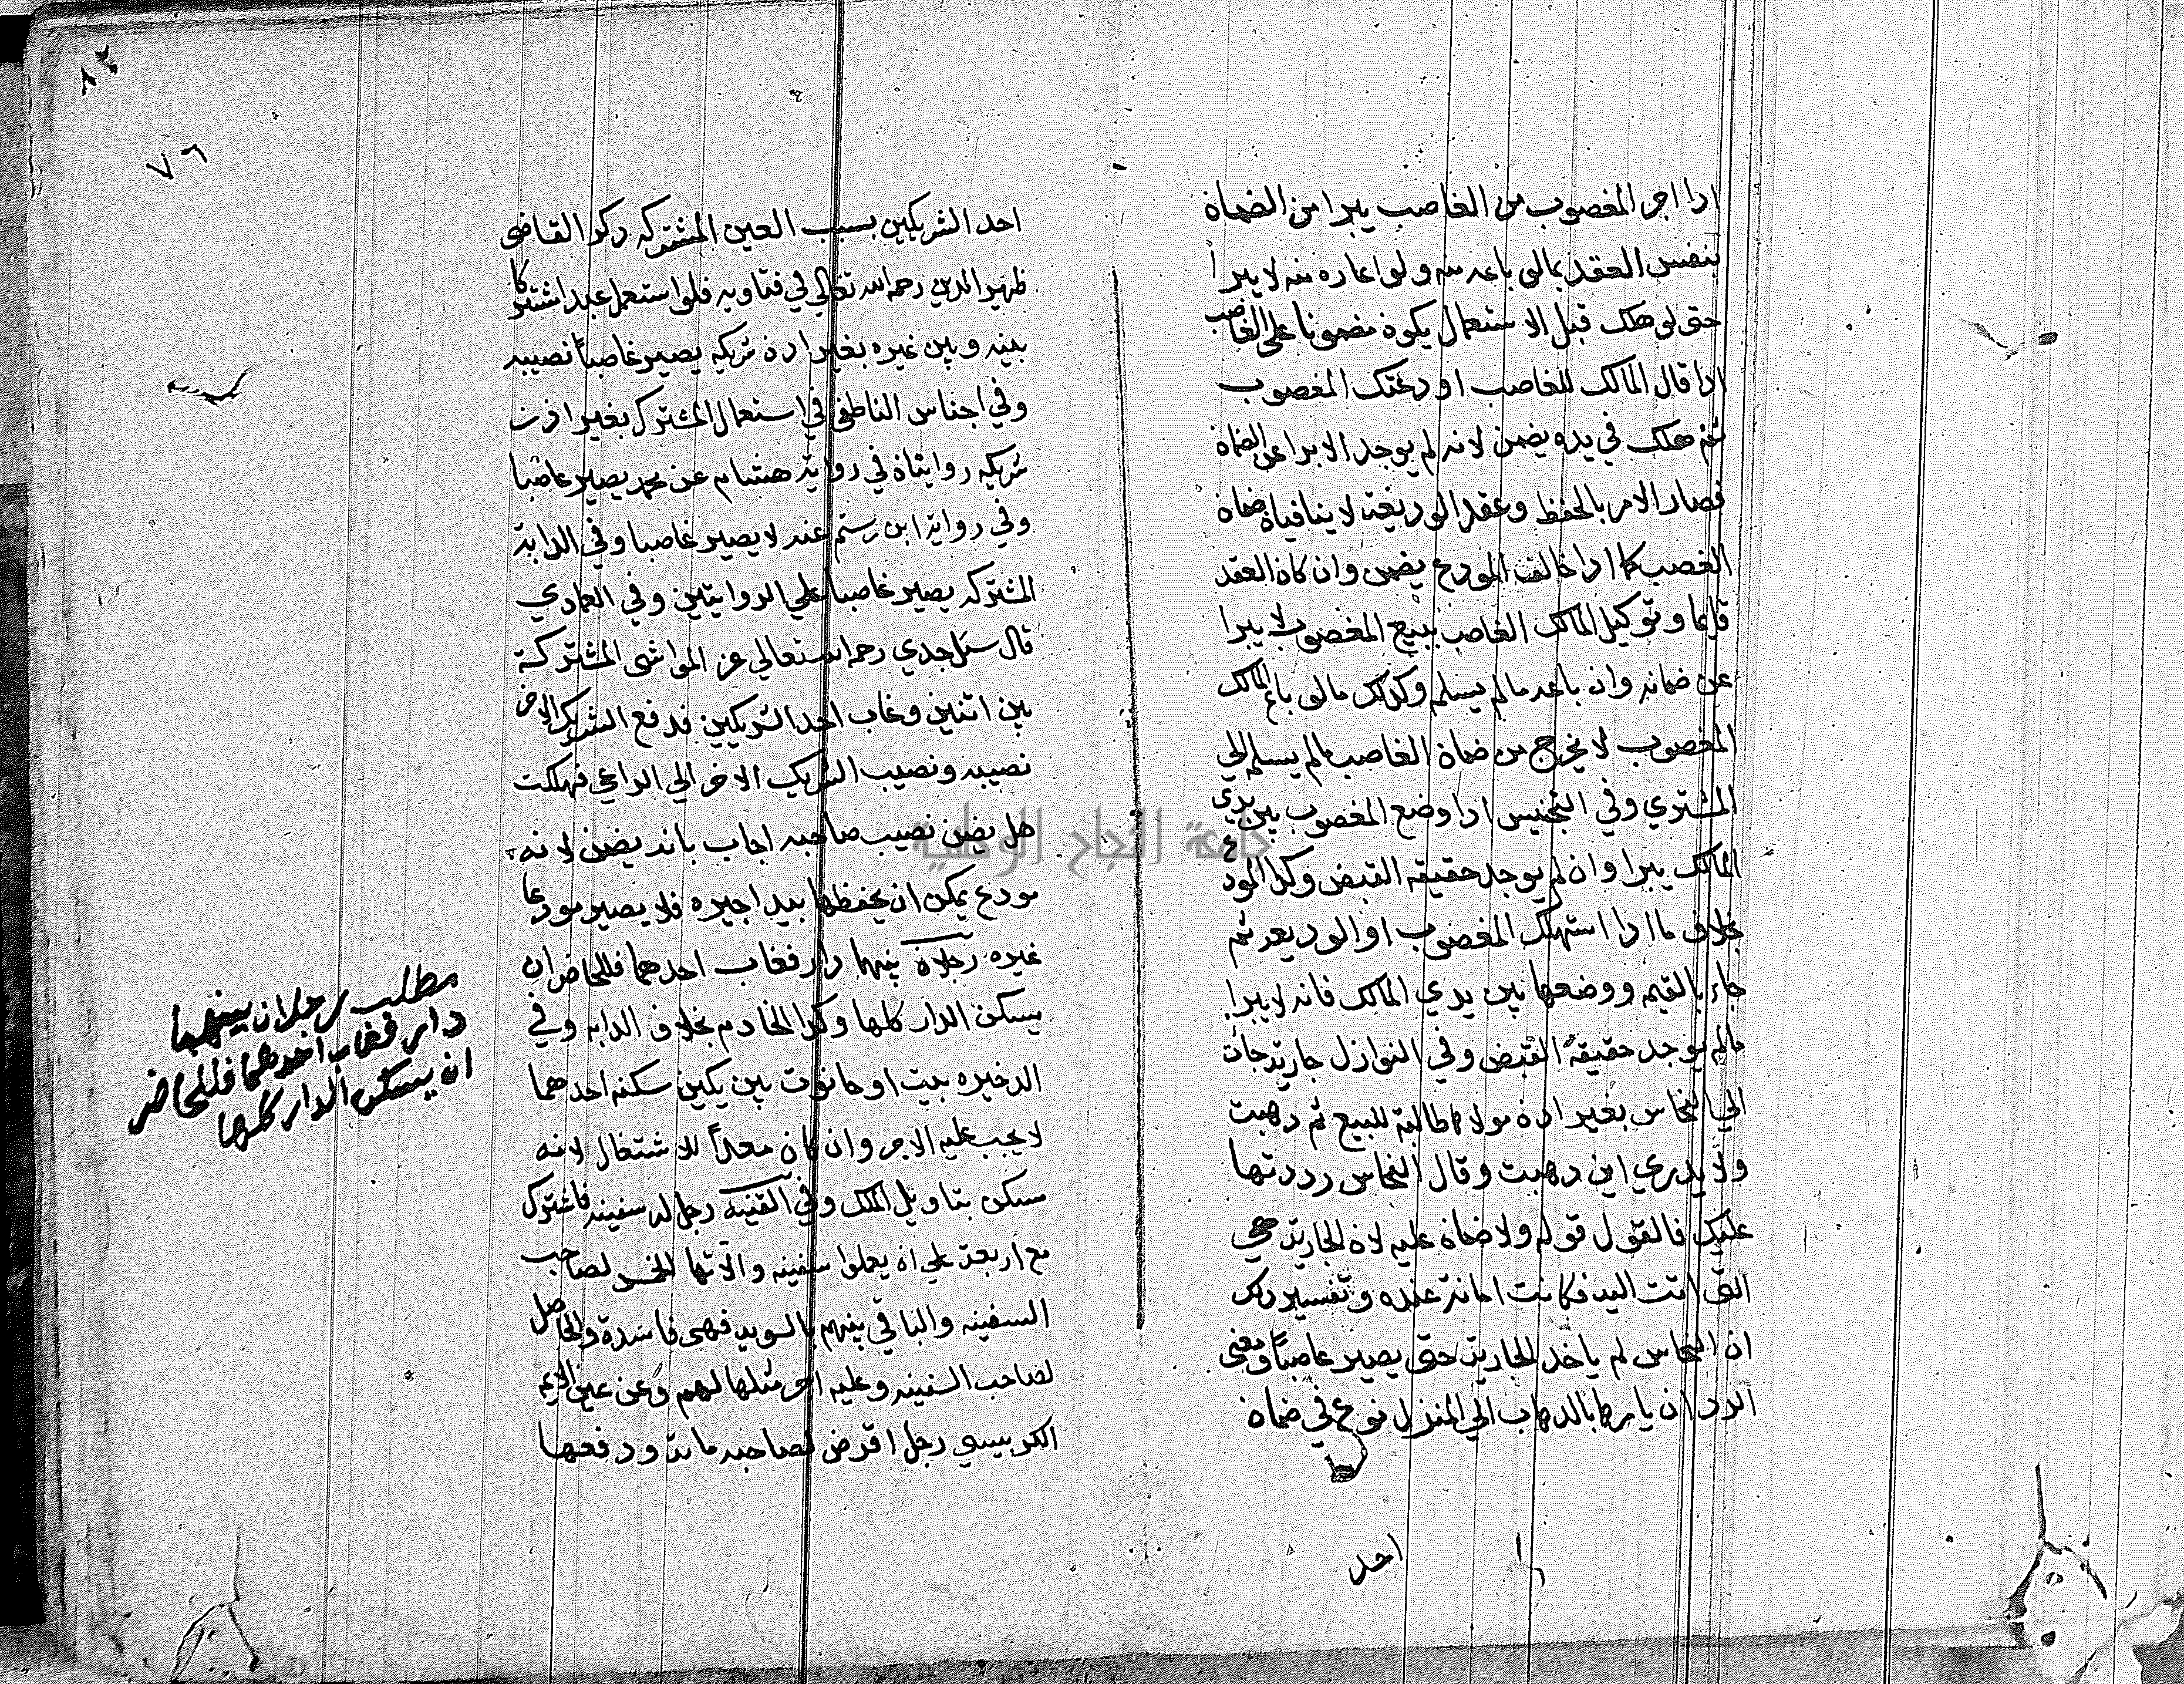 اذا اجر المغصوب من الغاصب يبرا من الضمان
بنفس العقد كما لو باعه منه ولو اعاره منه لا يبرا
حتى لو هلك قبل الاستعمال يكون مضمونا على الغاصب
اذا قال المالك للغاصب اودعتك المغصوب
ثم هلك في يده يضمن لانه لم يوجد الابرا عن الضمان
فصار الامر بالحفظ وعقد الوديعة لا ينافيان ضمان
الغصب كما اذا خالف المودع يضمن وان كان العقد
قايما وتوكيل المالك الغاصب ببيع المغصوب لا يبرا
عن ضمانه وان باعه ما لم يسلم وكذلك ما لو باع المالك
المغصوب لا يخرج من ضمان الغاصب ما لم يسلم الي
المشتري وفي التجنيس اذا وضع المغصوب بين يدي
المالك يبرا وان لم يوجد حقيقة القبض وكذا المودع
بخلاف ما اذا استهلك المغصوب او الوديعه ثم
جاء بالقيمه ووضعها بين يدي المالك فانه لا يبرا
ما لم يوجد حقيقة القبض وفي النوازل جارية جات
الي النخاس بغير اذن مولاها طالبة للبيع ثم ذهبت
ولا يدري اين ذهبت وقال النخاس رددتها
عليك فالقول قوله ولا ضمان عليه لان الجارية هي
التي اتت اليه فكانت امانة عنده وتفسير ذلك
ان النخاس لم ياخذ الجارية حتى يصير غاصبا ومعنى
الرد ان يامرها بالذهاب الي المنزل نوع في ضمان
احد
٧٦
احد الشريكين بسبب العين المشتركه ذكر القاضي
ظهير الدين رحمه الله تعالي في فتاويه فلو استعمل عبدا مشتركا
بينه وبين غيره بغير اذن شريكه يصير غاصبا نصيبه
وفي اجناس الناطفي في استعمال المشترك بغير اذن
شريكه روايتان في رواية هشام عن محمد يصير غاصبا
وفي رواية ابن رستم عنه لا يصير غاصبا وفي الدابة
المشتركه يصير غاصبا علي الروايتين وفي العمادي
قال سئل جدي رحمه الله تعالي عن المواشي المشتركة
بين اثنين وغاب احد الشريكين فدفع الشريك الاخر
نصيبه ونصيب الشريك الاخر الي الراعي فهلكت
هل يضمن نصيب صاحبه اجاب بانه يضمن لانه
مودع يمكن ان يحفظها بيد اجيره فلا يصير مودعا
غيره رجلان بينهما دار فغاب احدهما فللحاضر ان
يسكن الدار كلها وكذا الخادم بخلاف الدابه وفي
الذخيره بيت او حانوت بين شريكين سكنه احدهما
لا يجب عليه الاجر وان كان معدا للاشتغال لانه
سكن بتاويل الملك وفي القنيه رجل له سفينة فاشترك
مع اربعة علي ان يعملوا سفينه والاتها الخمس لصاحب
السفينه والباقي بينهم بالسويه فهي فاسدة والحاصل
لصاحب السفينه وعليه اجر مثلها لهم وعن عين الايمه
الكربيسي رجل اقرض لصاحبه مائة ودفعها
مطلب رجلان بينهما
دار فغاب احدهما فللحاضر
ان يسكن الدار كلها
جامعة النجاح الوطنية